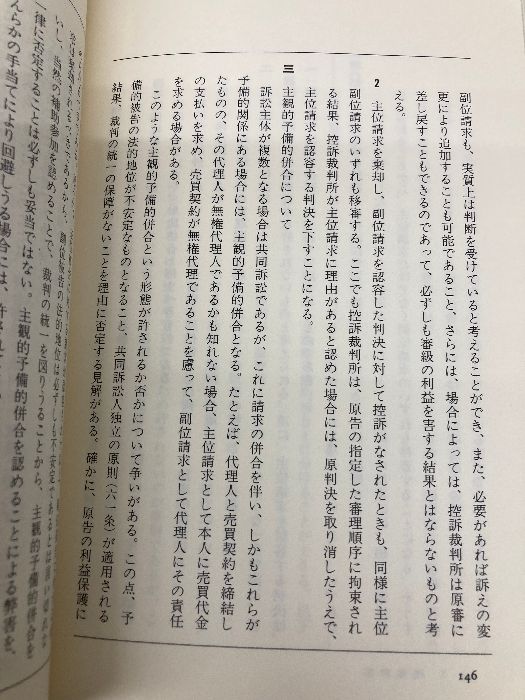 副位請求も、実質上は判断を受けていると考えることができ、また、必要があれば訴えの変
更により追加することも可能であること、さらには、場合によっては、控訴裁判所は原審に
差し戻すこともできるのであって、必ずしも審級の利益を害する結果とはならないものと考
える。
2 主位請求を棄却し、副位請求を認容した判決に対して控訴がなされたときも、同様に主位
副位請求のいずれも移審する。ここでも控訴裁判所は、原告の指定した審理順序に拘束され
る結果、控訴裁判所が主位請求に理由があると認めた場合には、原判決を取り消したうえで、
主位請求を認容する判決を下すことになる。
三
主観的予備的併合について
訴訟主体が複数となる場合は共同訴訟であるが、これに請求の併合を伴い、しかもこれらが
予備的関係にある場合には、主観的予備的併合となる。たとえば、代理人と売買契約を締結し
たものの、その代理人が無権代理人であるかも知れない場合、主位請求として本人に売買代金
の支払いを求め、売買契約が無権代理であることを慮って、副位請求として代理人にその責任
を求める場合がある。
このような主観的予備的併合という形態が許されるか否かについて争いがある。この点、予
備的被告の法的地位が不安定なものとなること、共同訴訟人独立の原則(六一条)が適用される
結果、裁判の統一の保障がないことを理由に否定する見解がある。確かに、原告の利益保護に
副位被告の法的地位は必ずしも不安定であるとは言い切れない
いし、当然の補助参加を認めることで、裁判の統一を図りうることから、主観的予備的併合を
一律に否定することは必ずしも妥当ではない。主観的予備的併合を認めることによる弊害を、
んらかの手当てにより回避しうる場合には、許
146